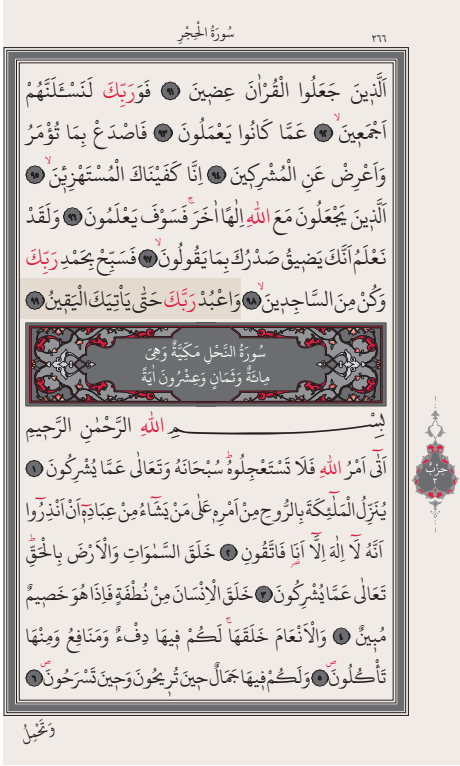 سُورَةُ الْحِجْرِ
٢٦٦
اَلَّذ۪ينَ جَعَلُوا الْقُرْاٰنَ عِض۪ينَ ﴿٩١﴾ فَوَرَبِّكَ لَنَسْـَٔلَنَّهُمْ
اَجْمَع۪ينَۙ ﴿٩٢﴾ عَمَّا كَانُوا يَعْمَلُونَ ﴿٩٣﴾ فَاصْدَعْ بِمَا تُؤْمَرُ
وَاَعْرِضْ عَنِ الْمُشْرِك۪ينَ ﴿٩٤﴾ اِنَّا كَفَيْنَاكَ الْمُسْتَهْزِء۪ينَۙ ﴿٩٥﴾
اَلَّذ۪ينَ يَجْعَلُونَ مَعَ اللّٰهِ اِلٰهًا اٰخَرَۚ فَسَوْفَ يَعْلَمُونَ ﴿٩٦﴾ وَلَقَدْ
نَعْلَمُ اَنَّكَ يَض۪يقُ صَدْرُكَ بِمَا يَقُولُونَۙ ﴿٩٧﴾ فَسَبِّحْ بِحَمْدِ رَبِّكَ
وَكُنْ مِنَ السَّاجِد۪ينَۙ ﴿٩٨﴾ وَاعْبُدْ رَبَّكَ حَتّٰى يَأْتِيَكَ الْيَق۪ينُ ﴿٩٩﴾
سُورَةُ النَّحْلِ مَكِّيَّةٌ وَهِيَ
مِائَةٌ وَثَمَانٍ وَعِشْرُونَ اٰيَةً
بِسْمِ اللّٰهِ الرَّحْمٰنِ الرَّح۪يمِ
اَتٰٓى اَمْرُ اللّٰهِ فَلَا تَسْتَعْجِلُوهُۜ سُبْحَانَهُ وَتَعَالٰى عَمَّا يُشْرِكُونَ ﴿١﴾
يُنَزِّلُ الْمَلٰٓئِكَةَ بِالرُّوحِ مِنْ اَمْرِه۪ عَلٰى مَنْ يَشَٓاءُ مِنْ عِبَادِه۪ٓ اَنْ اَنْذِرُٓوا
اَنَّهُ لَٓا اِلٰهَ اِلَّٓا اَنَا۬ فَاتَّقُونِ ﴿٢﴾ خَلَقَ السَّمٰوَاتِ وَالْاَرْضَ بِالْحَقِّۜ
تَعَالٰى عَمَّا يُشْرِكُونَ ﴿٣﴾ خَلَقَ الْاِنْسَانَ مِنْ نُطْفَةٍ فَاِذَا هُوَ خَص۪يمٌ
مُب۪ينٌ ﴿٤﴾ وَالْاَنْعَامَ خَلَقَهَاۚ لَكُمْ ف۪يهَا دِفْءٌ وَمَنَافِعُ وَمِنْهَا
تَأْكُلُونَۖ ﴿٥﴾ وَلَكُمْ ف۪يهَا جَمَالٌ ح۪ينَ تُر۪يحُونَ وَح۪ينَ تَسْرَحُونَۖ ﴿٦﴾
حِزْبٌ
٢
وَتَحْمِلُ